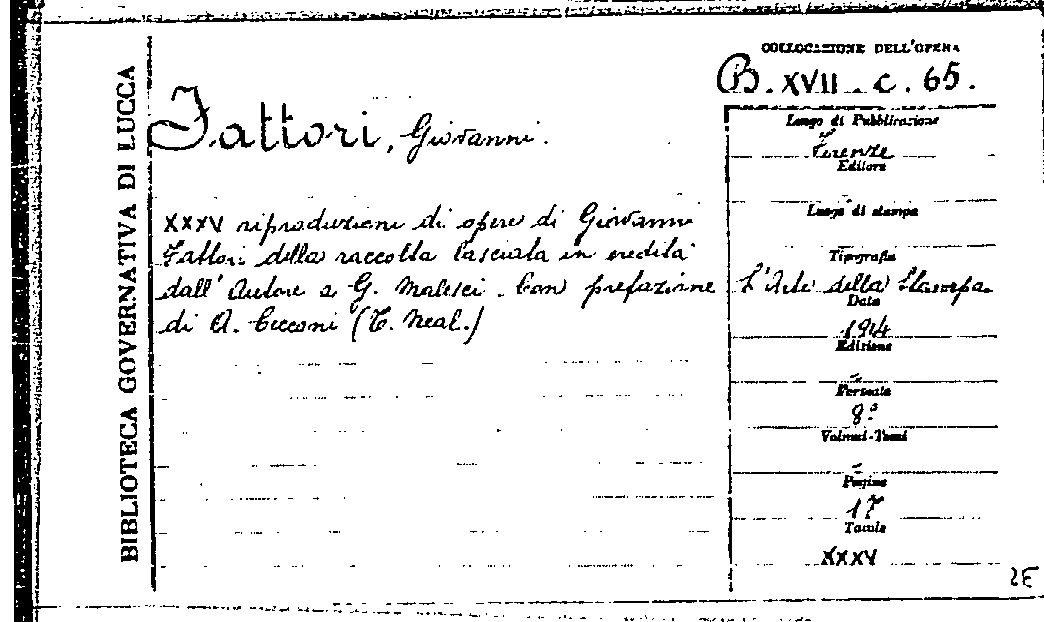 BIBLIOTECA GOVERNATIVA DI LUCCA
COLLOCAZIONE DELL'OPERA
B. XVII. c. 65.
Fattori, Giovanni.
XXXV riproduzioni di opere di Giovanni
Fattori della raccolta lasciata in eredità
dall'Autore a G. Malesci. Con prefazione
di A. Cecconi (T. Neal.)
Luogo di Pubblicazione
Firenze
Editore
Luogo di stampa
Tipografia
L'Arte della Stampa.
Data
1914
Edizione
Formato
8°
Volumi-Tomi
Pagine
17
Tavole
XXXV